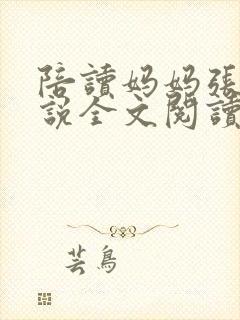 陪讀妈妈張
說全文閱讀
芸鳥